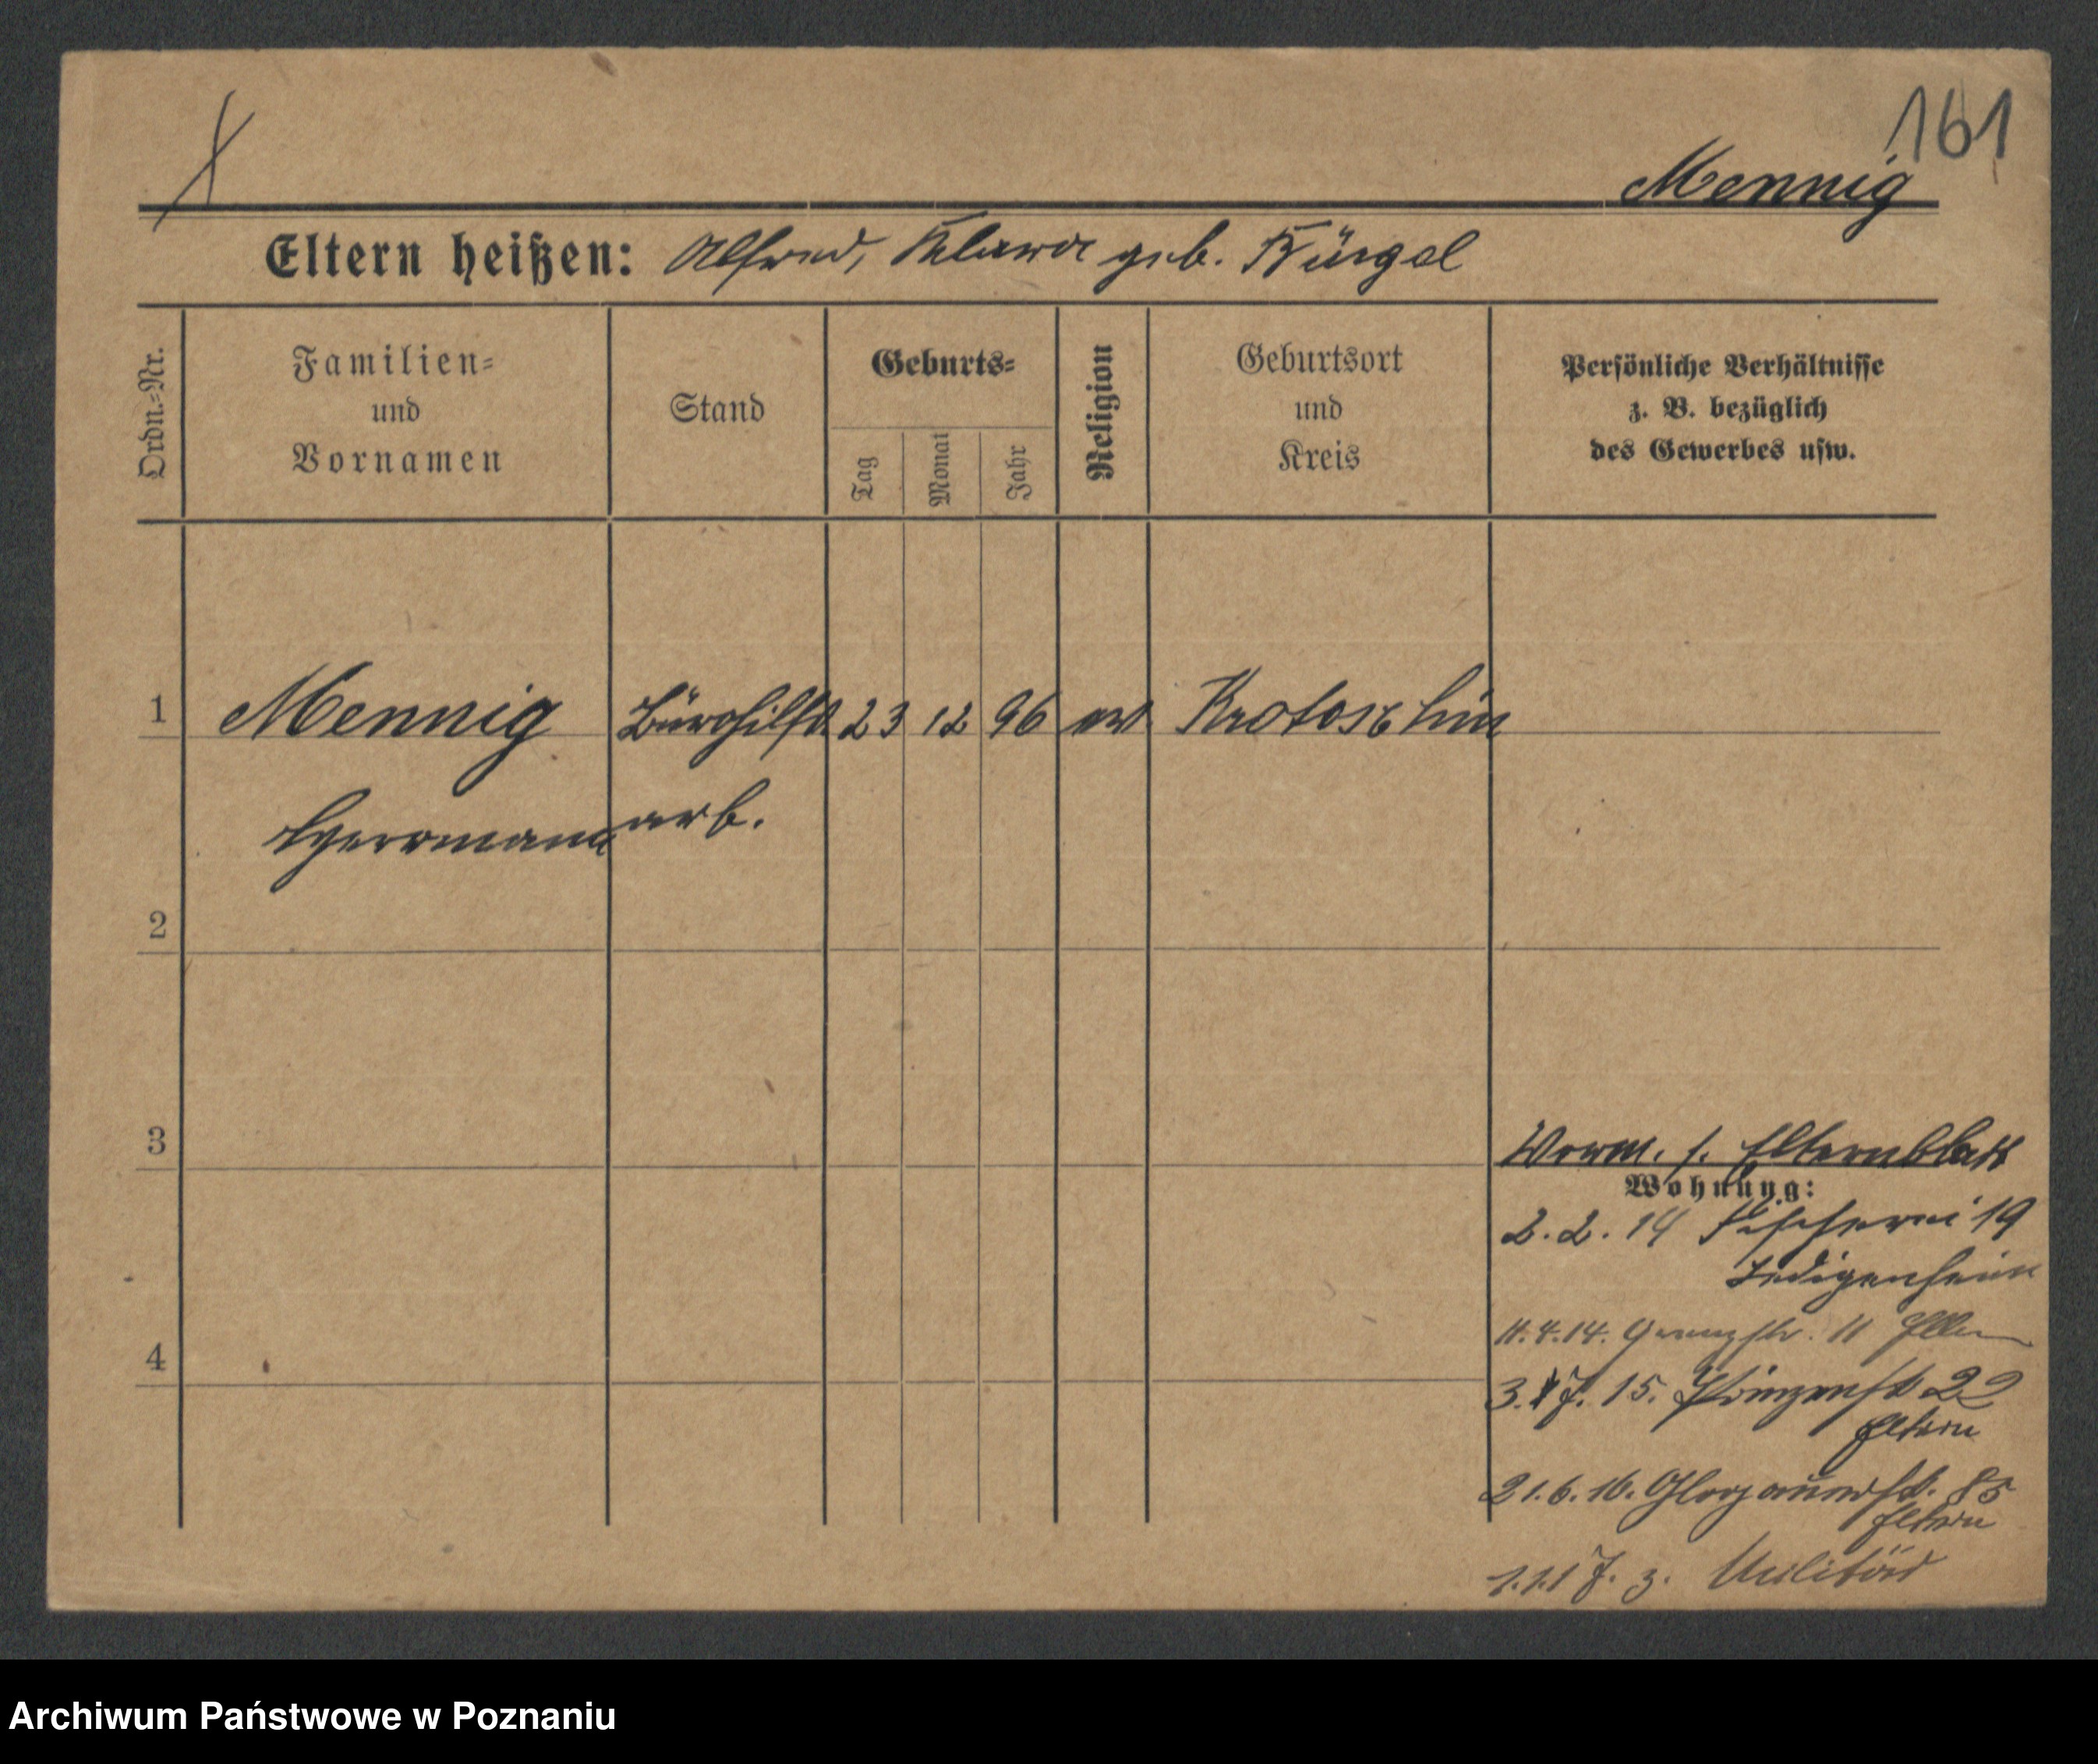 161
Mennig
Eltern heißen: Alfred, Klara geb. Kürgel
Ordn.-Nr.
Familien-
und
Vornamen
Stand
Geburts-
Tag
Monat
Jahr
Religion
Geburtsort
und
Kreis
Persönliche Verhältnisse
z. B. bezüglich
des Gewerbes usw.
1 Mennig Bürohilfs 23 12 96 ev Krotoschin
Hermann arb.
2
3
Vorm. s. Elternblatt
Wohnung:
2.2.14 Fischerei 19
Ledigenheim
4
11.4.14. Grenzstr. 11 Eltern
3.7.15. Prinzenstr 22
Eltern
21.6.16. Glogauerstr. 85
Eltern
1.1.17. z. Militär
Archiwum Państwowe w Poznaniu